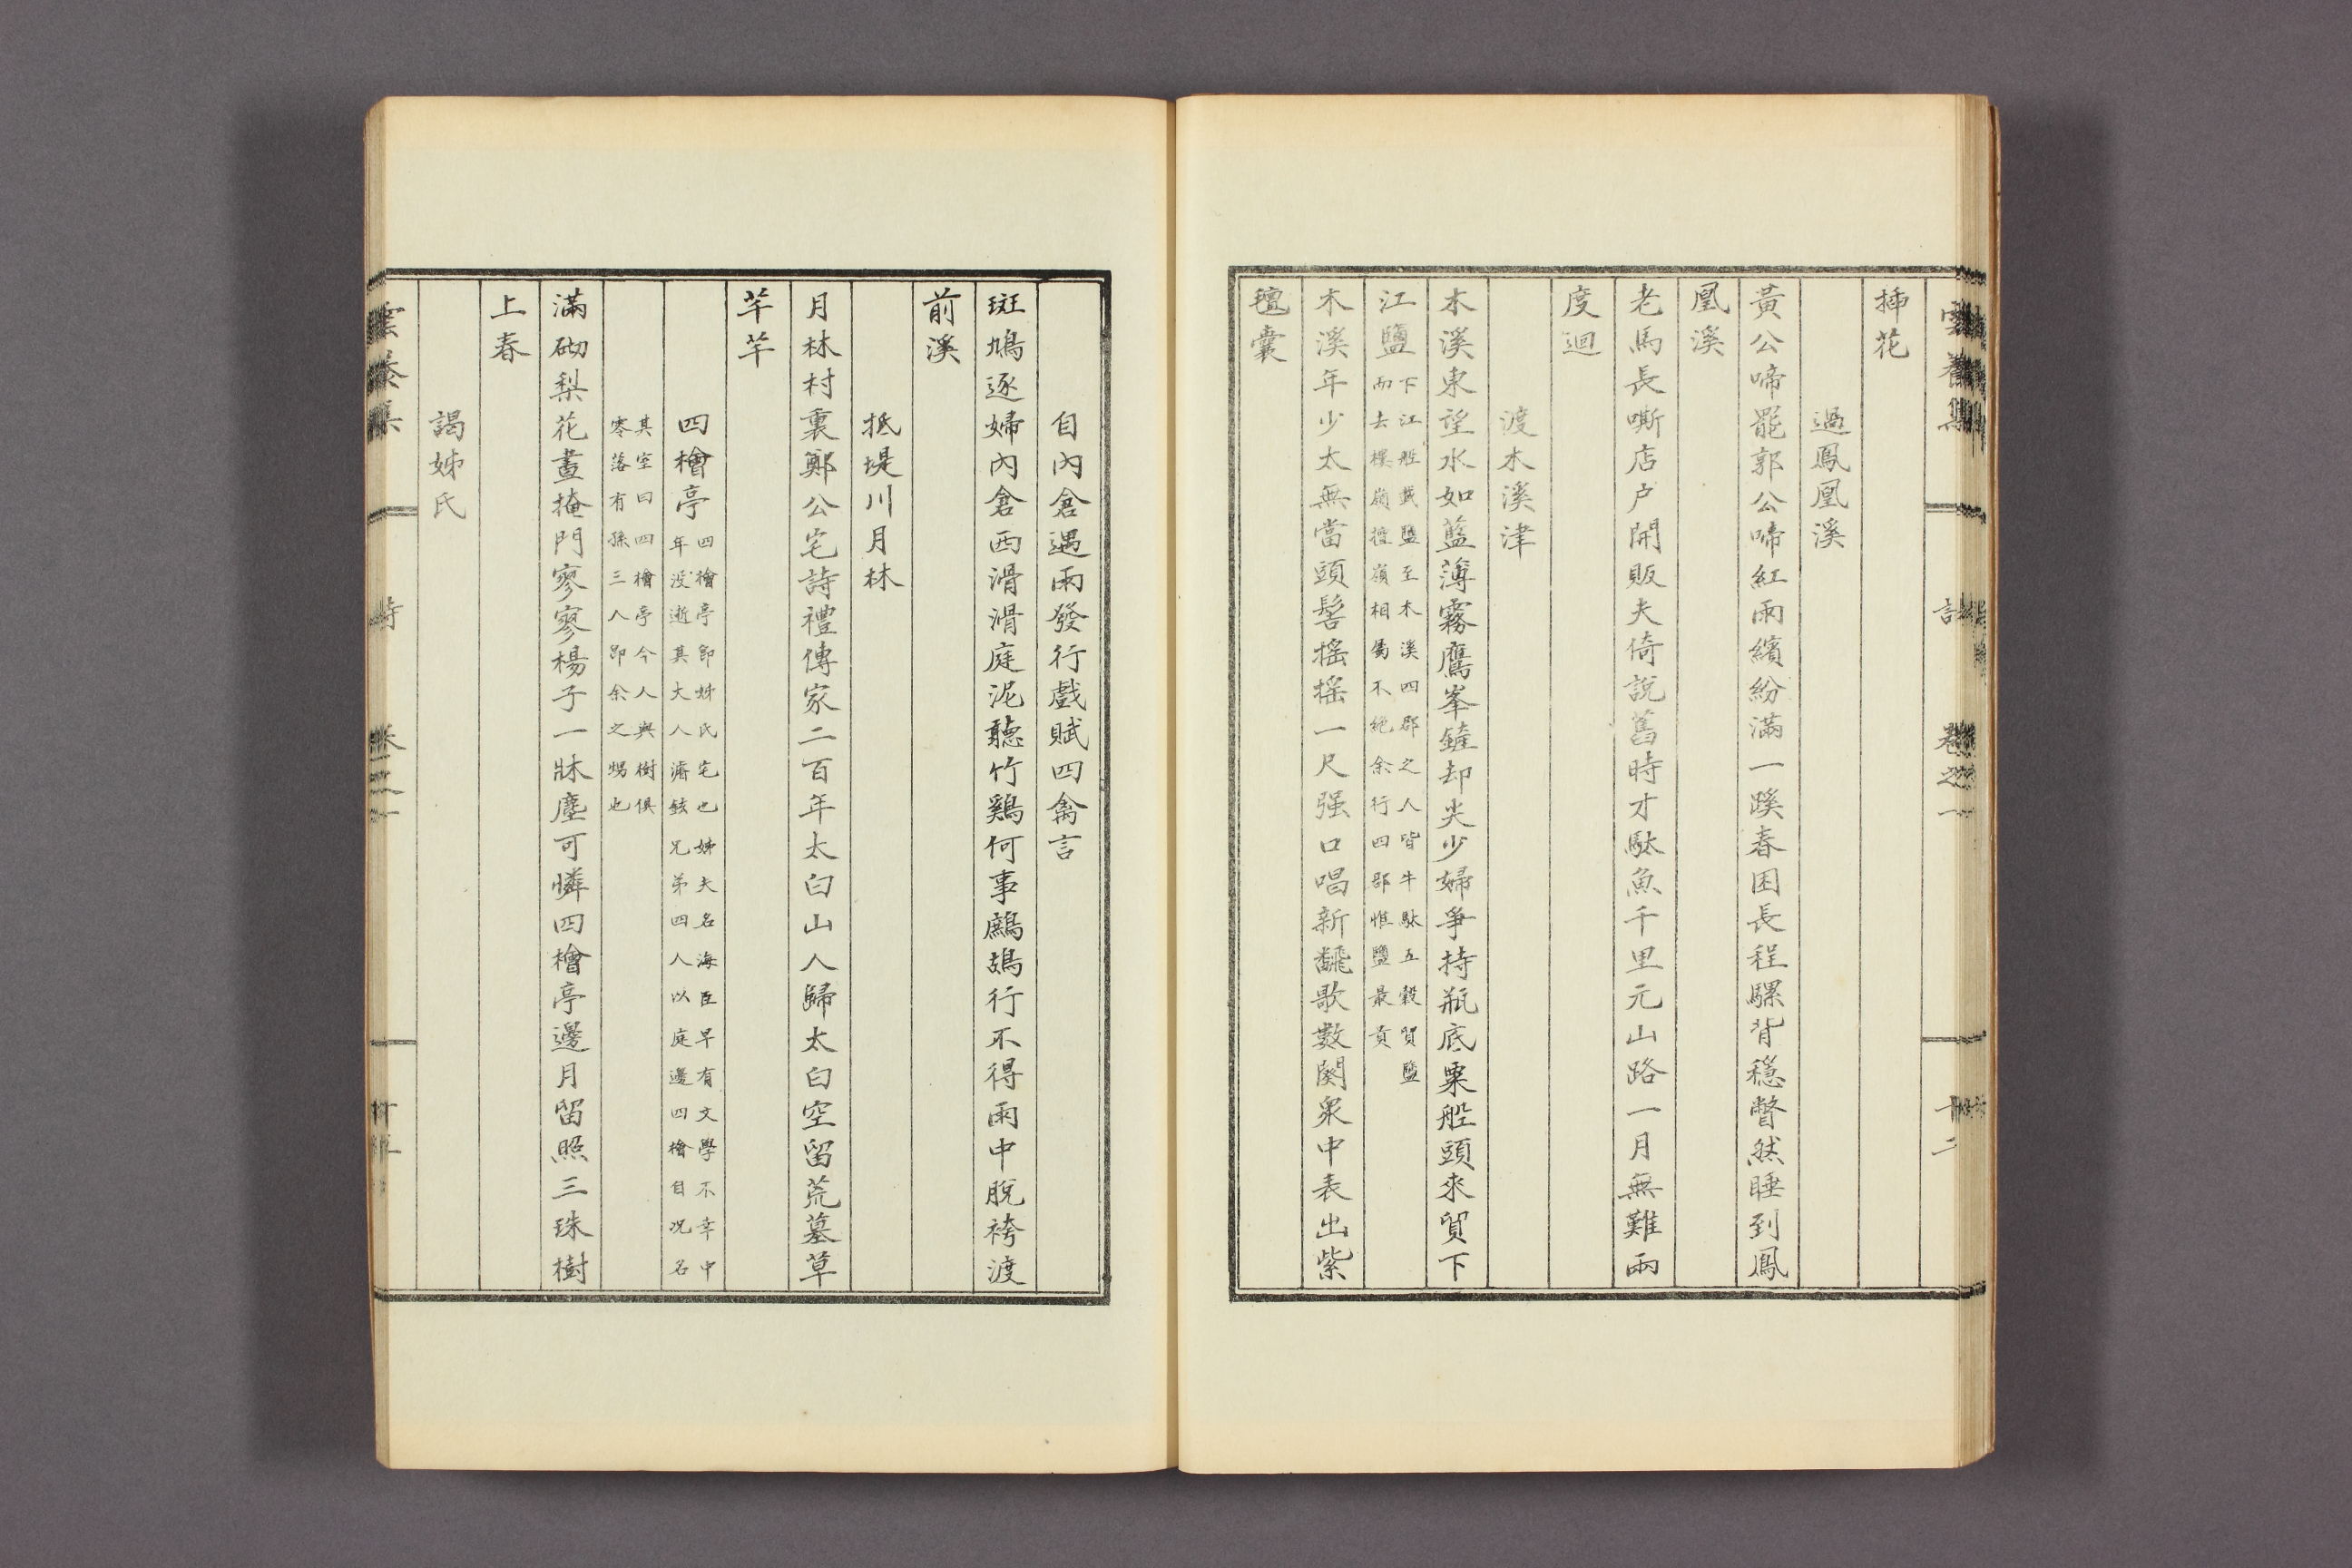 揷花
過鳳凰溪
黃公啼罷郭公啼紅雨繽紛滿一蹊春困長程騾背穩瞥然睡到鳳
凰溪
老馬長嘶店户開販夫倚說舊時才駄魚千里元山路一月無難兩
度迴
渡木溪津
木溪東望水如藍薄霧鷹峯鏟却尖少婦爭持瓶底粟船頭來貿下
江鹽
下江船載鹽至木溪四郡之人皆牛駄五穀貿鹽
而去樸嶺擔嶺相屬不絶余行四郡惟鹽最貴
木溪年少太無當頭髻摇摇一尺强口唱新飜歌數闋衆中表出紫
氊囊
自內倉遇雨發行戲賦四禽言
斑鳩逐婦內倉西滑滑庭泥聽竹鷄何事鷓鴣行不得雨中脫袴渡
前溪
抵堤川月林
月林村裏鄭公宅詩禮傳家二百年太白山人歸太白空留荒墓草
芊芊
四檜亭
四檜亭卽姊氏宅也姊夫名海臣早有文學不幸中
年沒逝其大人濟鉉兄弟四人以庭邊四檜自况名
其室曰四檜亭今人與樹俱
零落有孫三人卽余之甥也
滿砌梨花晝掩門寥寥楊子一牀塵可憐四檜亭邊月留照三珠樹
上春
謁姊氏